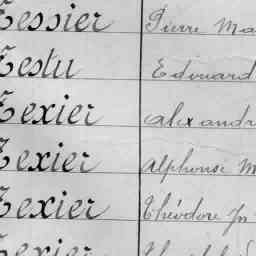 Tessier Pierre Ma
Testu Edouard
Texier Alexandr
Texier Alphonse M
Texier Théodore Jn
Texier